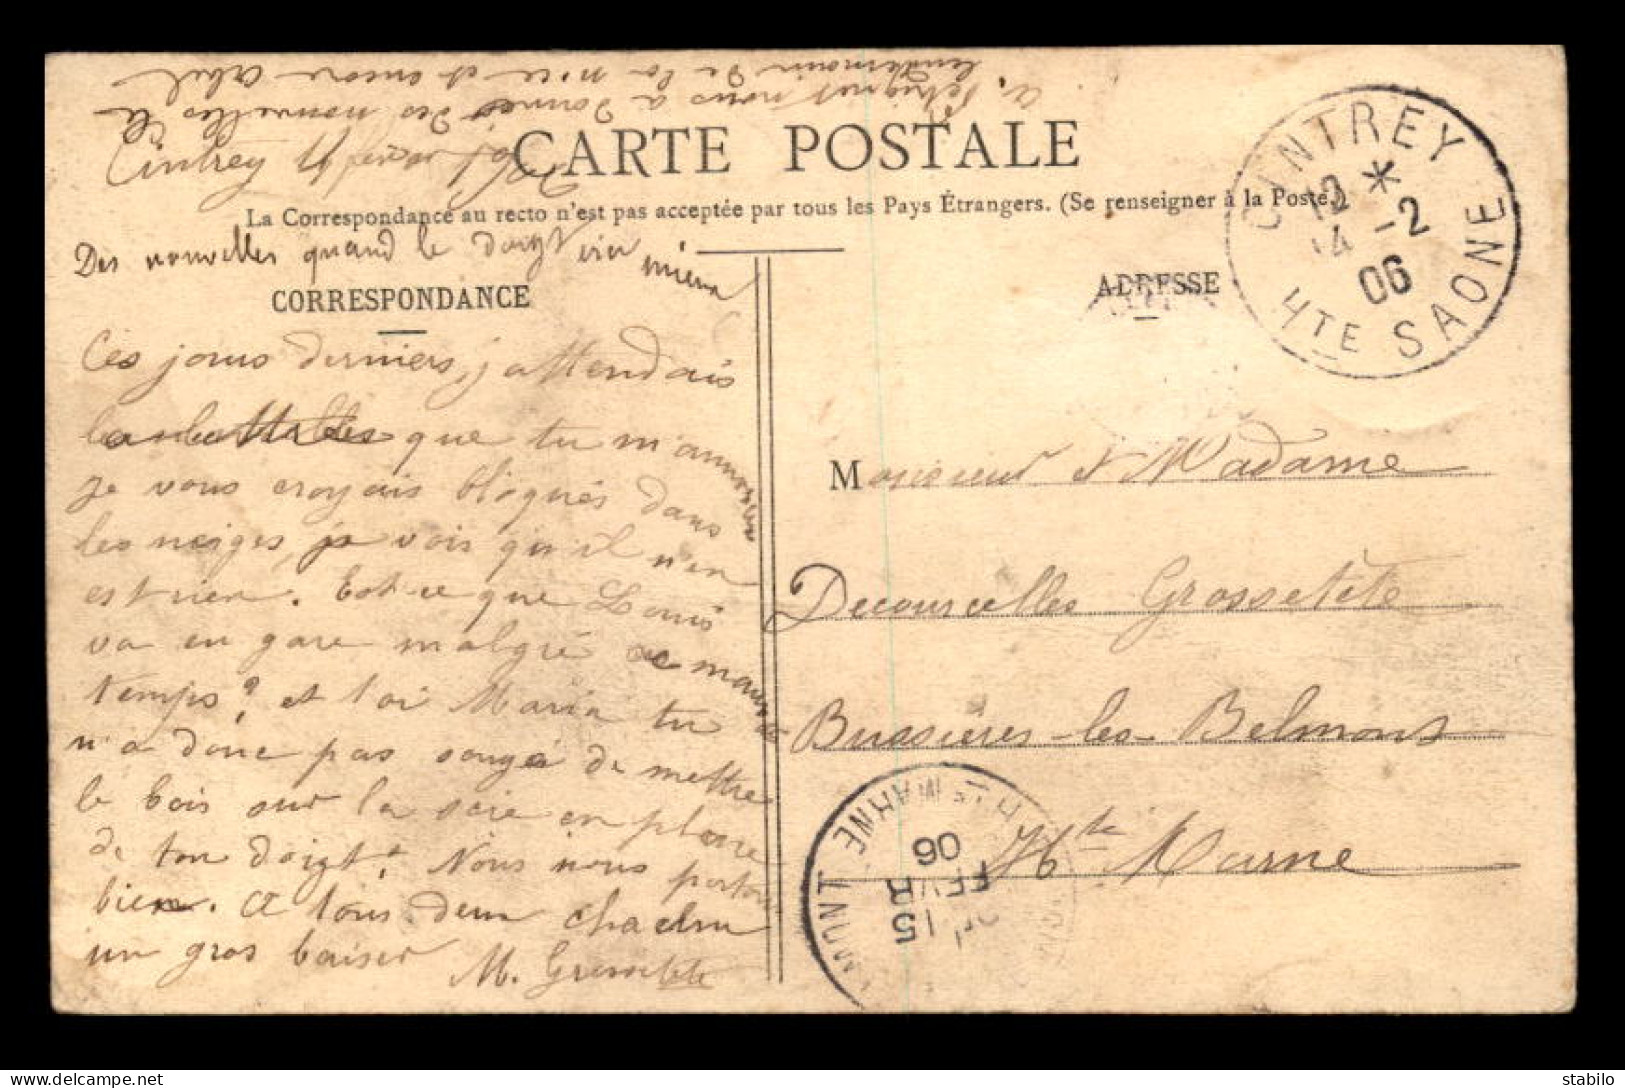 A Pétignet nous a donné des nouvelles le
lendemain de la nice et encore Abel
CARTE POSTALE
Cintrey 14 février 1906
La Correspondance au recto n'est pas acceptée par tous les Pays Étrangers. (Se renseigner à la Poste.)
Des nouvelles quand le doigt sera mieux
CORRESPONDANCE
Ces jours derniers, j'attendais
que tu m'annonces
je vous croyais bloqués dans
les neiges, je vois qu'il n'en
est rien. Est-ce que Louis
va en gare malgré ce mauvais
temps? et toi Maria tu
n'a donc pas songé de mettre
le bois sur la scie en place
de ton doigt? Nous nous portons
bien. A tous deux chacun
un gros baiser
M. Grossetête
ADRESSE
Monsieur & Madame
Decourcelles Grossetête
Bussières-les-Belmont
Hte Marne
CINTREY
12 *
14 -2
06
HTE SAONE
MONT HTE MARNE
15
FEVR
06
stabilo